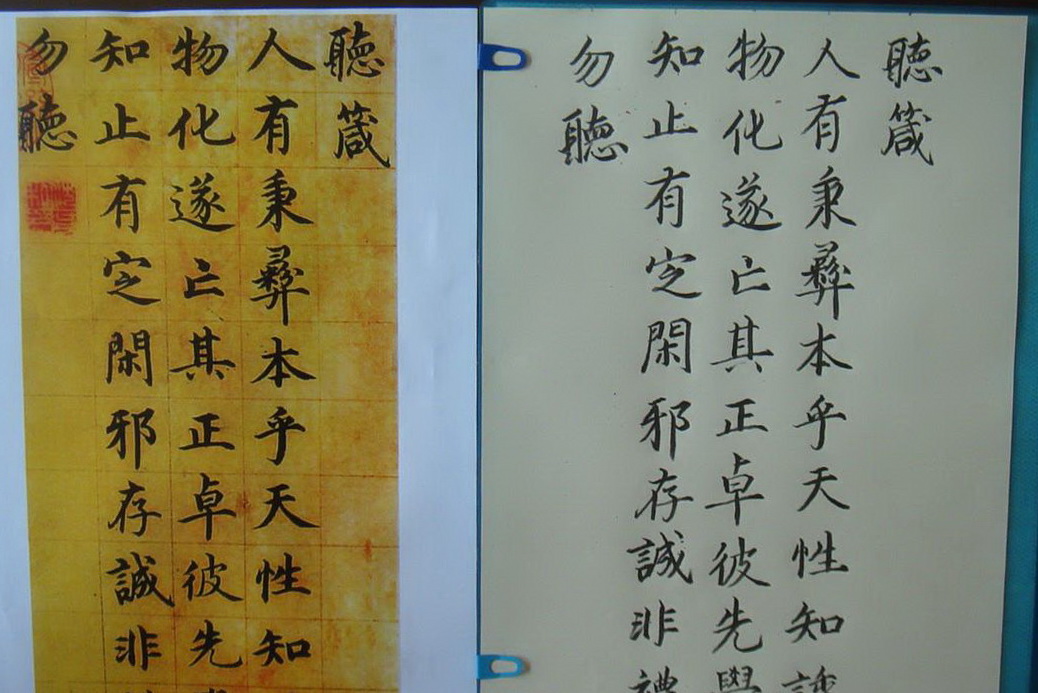 聽箴
人有秉彝本乎天性知
物化遂亡其正卓彼先
知止有定閑邪存誠非
勿聽
聽箴
人有秉彝本乎天性知誘
物化遂亡其正卓彼先學
知止有定閑邪存誠非禮
勿聽